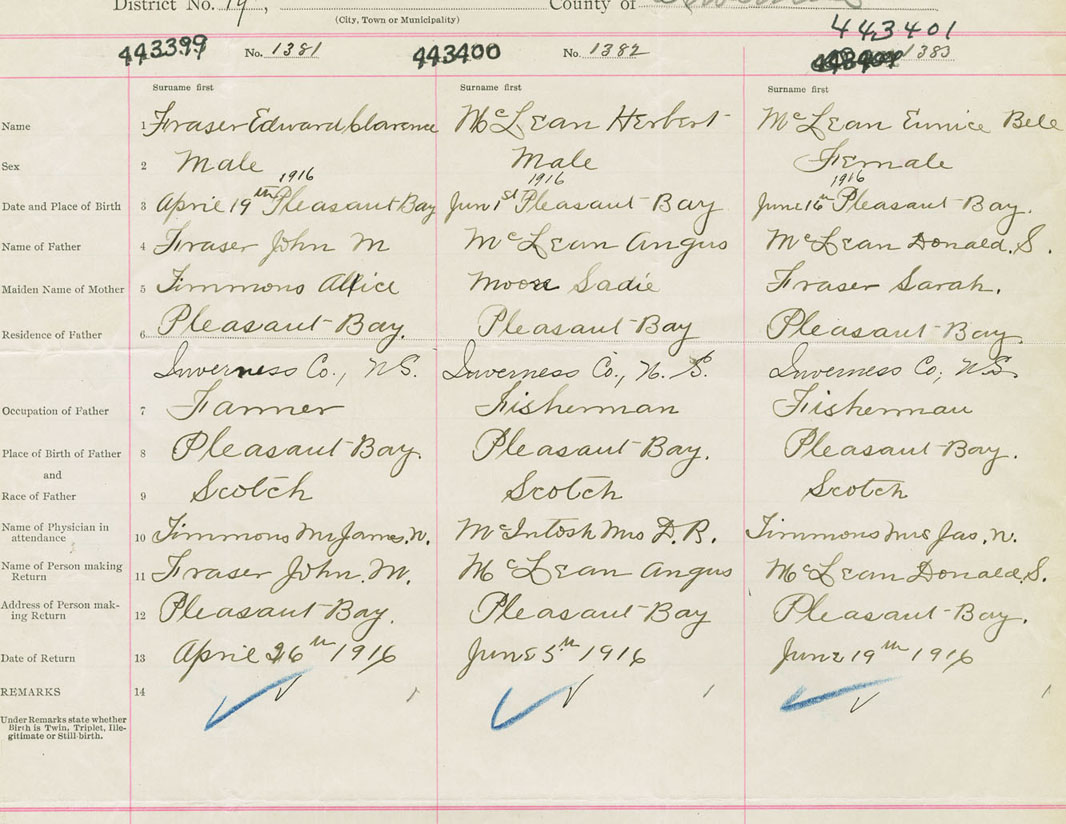 District No. 19, County of
(City, Town or Municipality)
443401
443399 No. 1381 443400 No. 1382 1383
Surname first Surname first Surname first
Name 1 Fraser Edward Clarence McLean Herbert McLean Eunice Bele
Sex 2 Male Male Female
1916 1916 1916
Date and Place of Birth 3 Aprile 19th Pleasant Bay Jun 1st Pleasant Bay June 16th Pleasant Bay.
Name of Father 4 Fraser John M McLean Angus McLean Donald. S.
Maiden Name of Mother 5 Timmons Allice Moore Sadie Fraser Sarah.
Residence of Father 6 Pleasant Bay. Pleasant Bay Pleasant Bay
Inverness Co., N.S. Inverness Co., N. S. Inverness Co; N.S.
Occupation of Father 7 Farmer Fisherman Fisherman
Place of Birth of Father 8 Pleasant Bay. Pleasant Bay. Pleasant Bay.
and
Race of Father 9 Scotch Scotch Scotch
Name of Physician in
attendance 10 Timmons Mrs James. N. McIntosh Mrs D. R. Timmons Mrs Jas. N.
Name of Person making
Return 11 Fraser John. M. McLean Angus McLean Donald. S.
Address of Person mak-
ing Return 12 Pleasant Bay. Pleasant Bay Pleasant Bay.
Date of Return 13 Aprile 26th 1916 June 5th 1916 June 19th 1916
REMARKS 14
Under Remarks state whether
Birth is Twin, Triplet, Ille-
gitimate or Still-birth.